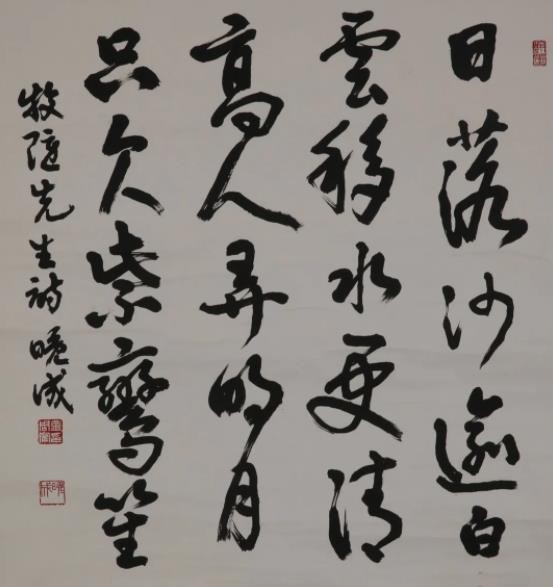 日落沙逾白
雲移水更清
高人弄明月
只欠紫鸞笙
牧隱先生詩 成